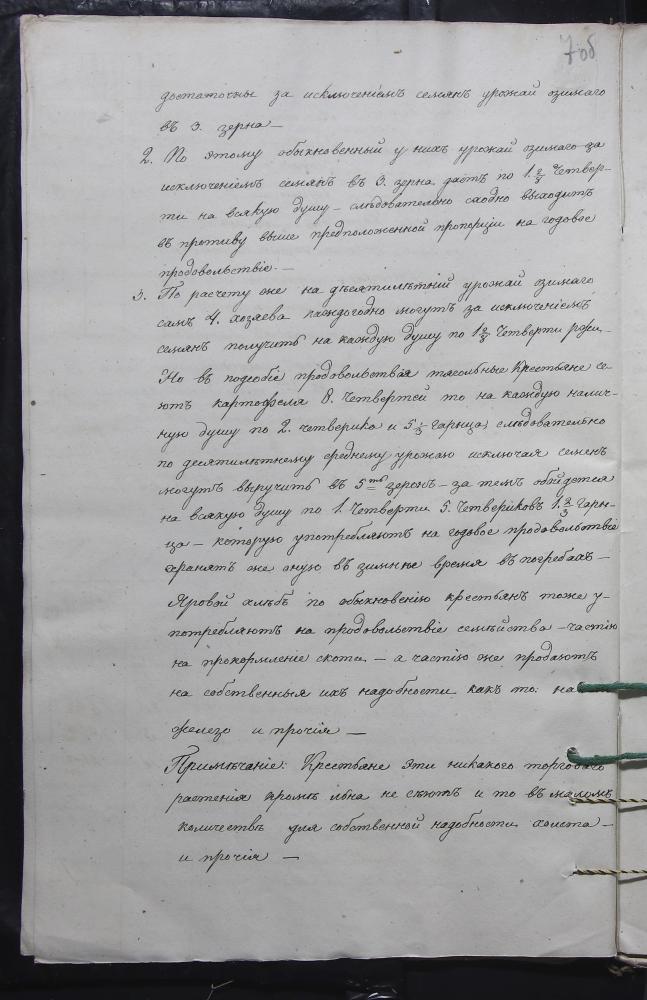 7 об
достаточны за исключенiемъ семянъ урожай озимаго
въ 3. зерна —
2. По этому обыкновенный у нихъ урожай озимаго за
исключенiемъ семянъ въ 3. зерна даетъ по 1 2/8 Четвер-
ти на всякую душу — слѣдовательно сходно выходитъ
въ противу выше предположенной пропорцiи на годовое
продовольствiе. —
3. По расчету же на десятилѣтнiй урожай озимаго
самъ 4. хозяева каждогодно могутъ за исключенiемъ
семянъ получить на каждую душу по 1 Четверти ржи. —
Но въ подсобiе продовольствiя тягольные Крестьяне се-
ютъ картофеля 8. Четвертей то на каждую налич-
ную душу по 2. четверика и 5 1/3 гарнца; слѣдовательно
по десятилѣтнему среднему урожаю исключая семенъ
могутъ выручить въ 5ть зеренъ — за темъ обойдется
на всякую душу по 1. Четверти 5. Четвериковъ 1. 2/3 гарн-
ца — которую употребляютъ на годовое продовольствiе
хранятъ же оную въ зимнѣе время въ погребахъ —
Яровой хлѣбъ по обыкновенiю крестьянъ тоже у-
потребляютъ на продовольствiе семѣйства — частiю
на прокормленiе скота — а частiю же продаютъ
на собственныя ихъ надобности какъ то: на
железо и прочiя —
Примѣчанiе: Крестьяне эти никакого торговаго
растенiя кромѣ льна не сѣютъ и то въ маломъ
количествѣ для собственной надобности холста —
и прочiя —